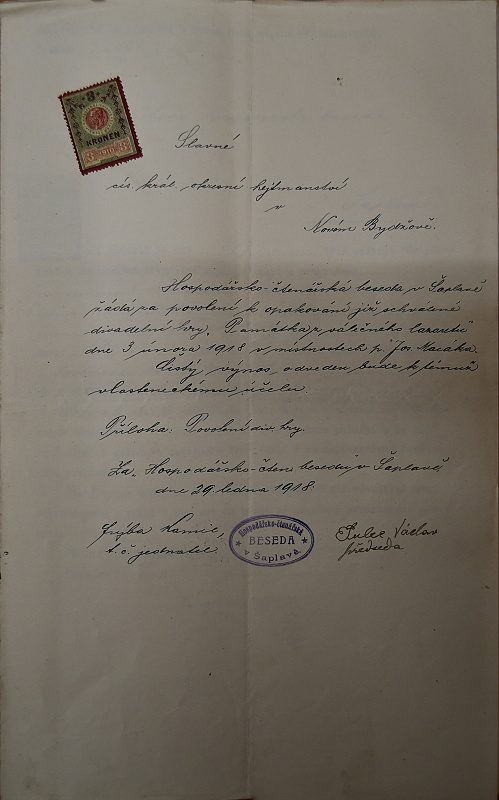 3
KRONEN
Slavné
cís. král. okresní hejtmanství
v
Novém Bydžově.
Hospodářsko-čtenářská beseda v Šaplavě
žádá za povolení k opakování již schválené
divadelní hry „Památka z válečného lazaretu
dne 3 února 1918 v místnostech p. Jos. Macáka.
Čistý výnos odveden bude k témuž
vlasteneckému účelu.
Příloha: Povolení div. hry.
Za „Hospodářsko-čten. besedu v Šaplavě
dne 29. ledna 1918.
t. č. jednatel.
Hospodářsko-čtenářská
BESEDA
v Šaplavě
Václav
předseda